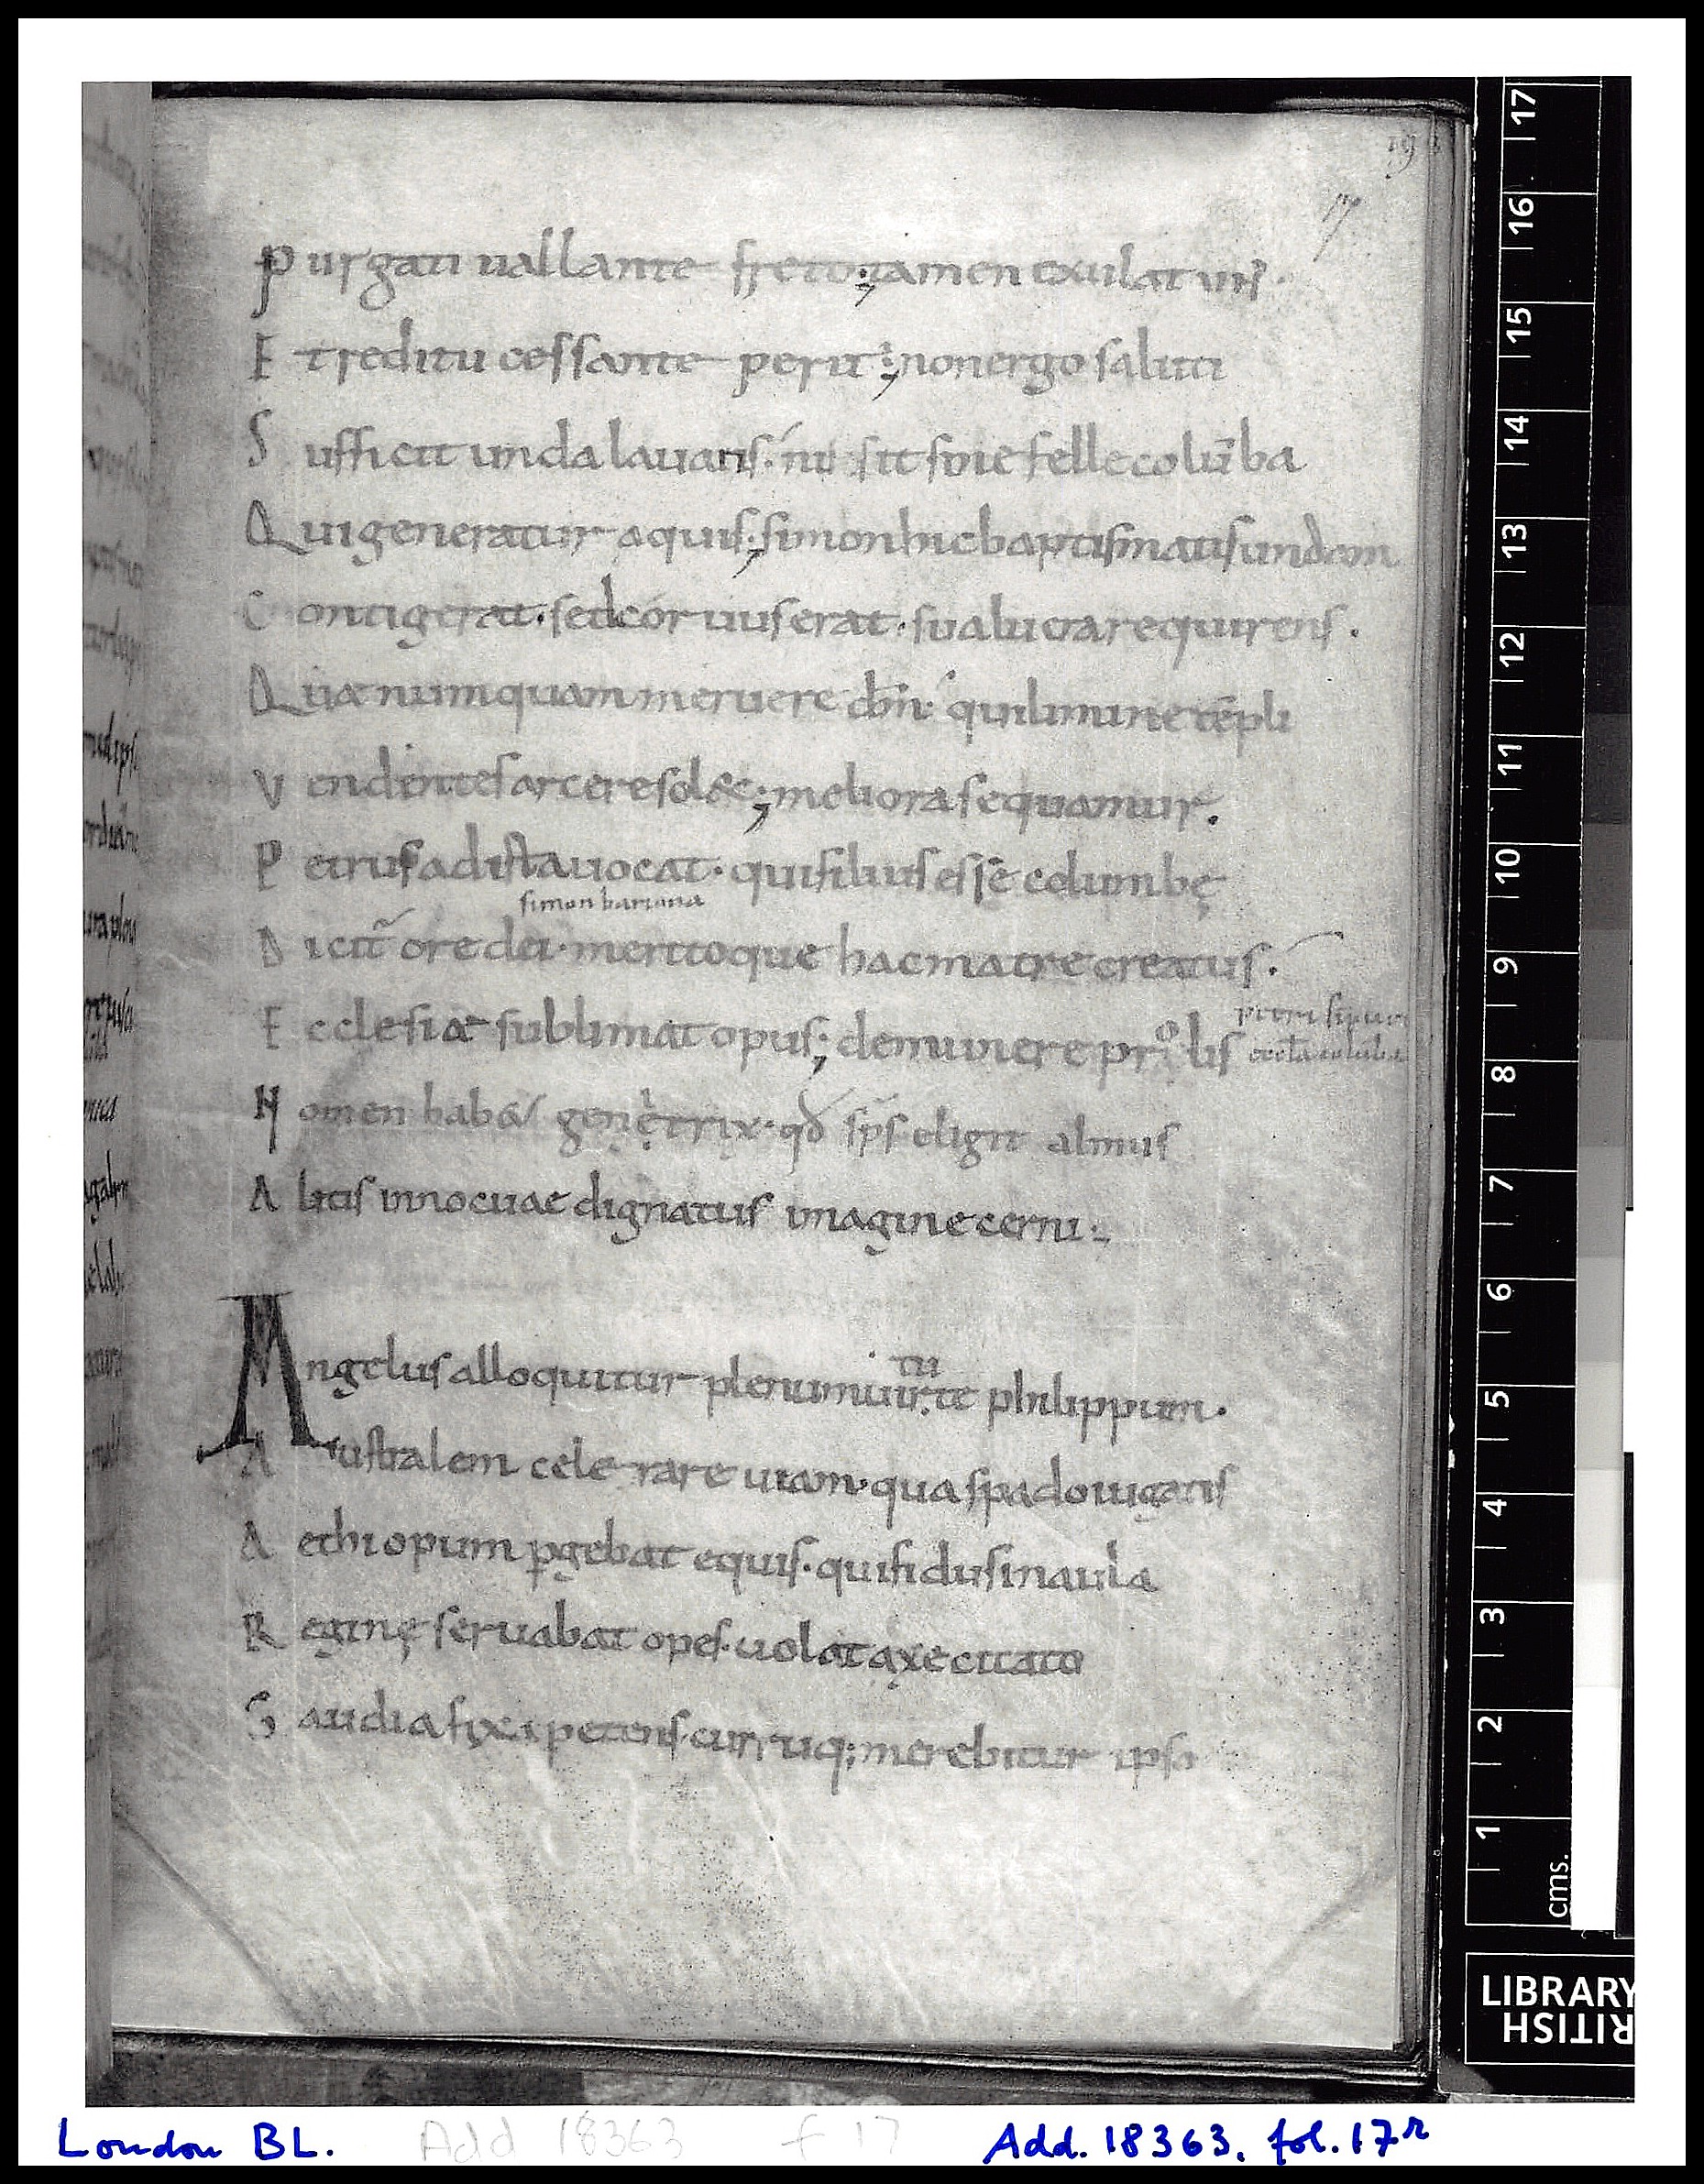 19
17
Purgati uallante freto; tamen exulat uris.
Et reditu cessante perit; non ergo saluti
Sufficit unda lauatis. ni sit sine felle colūba
Qui generatur aquis; simon hic baptismatis undam
Contigerat. sed coruus erat. sua lucra requirens.
Quæ numquam meruere dīn. qui limine tēpli
Vendentes arcere sol&; meliora sequamur.
Petrus ad ista uocat. qui filius esse columbę
simon bariona
Dicit̄ ore dei. meritoque hac matre creatus.
Ecclesiæ sublimat opus; de munere prolis
petri
Nomen hab& genetrix. qđ sp̄s eligit almus
Alitis innocuae dignatus imagine cerni.
Angelus alloquitur plenum uirtute philippum.
tu
Australem celerare uiam. qua spado uigatis
Aethiopum pgebat equis. qui fidus in aula
Reginę seruabat opes. uolat axe citato
Gaudia fixa petens. curruq; merebitur ipso
London BL. Add 18363 f 17 Add. 18363, fol. 17r
cms. 1 2 3 4 5 6 7 8 9 10 11 12 13 14 15 16 17
LIBRARY
BRITISH